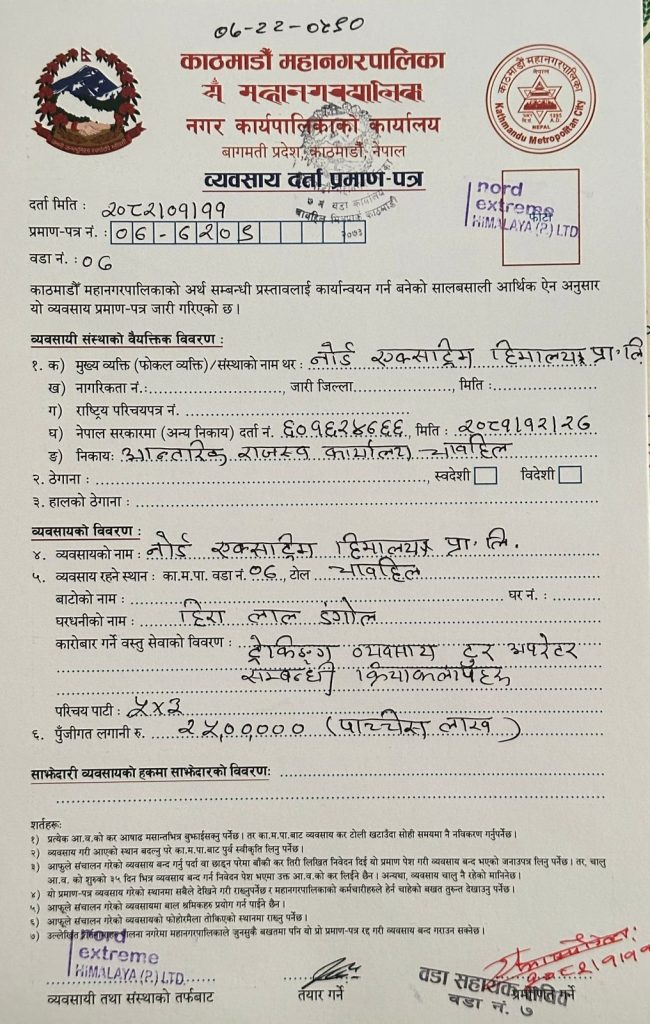 काठमाडौं महानगरपालिका
नगर कार्यपालिकाको कार्यालय
बागमती प्रदेश, काठमाडौं, नेपाल
काठमाडौं महानगरपालिका
नेपाल
Kathmandu Metropolitan City
व्यवसाय दर्ता प्रमाण-पत्र
७ नं वडा कार्यालय
फोटो
nord
extreme
HIMALAYA (P.) LTD
दर्ता मिति : २०८२।०१।११
प्रमाण-पत्र नं. :
२०७३
वडा नं. : ०७
काठमाडौं महानगरपालिकाको अर्थ सम्बन्धी प्रस्तावलाई कार्यान्वयन गर्न बनेको सालबसाली आर्थिक ऐन अनुसार
यो व्यवसाय प्रमाण-पत्र जारी गरिएको छ।
व्यवसायी संस्थाको वैयक्तिक विवरण :
१. क) मुख्य व्यक्ति (फोकल व्यक्ति)/संस्थाको नाम थर : नोर्ड एक्सट्रिम हिमालय प्रा.लि
ख) नागरिकता नं.: , जारी जिल्ला , मिति :
ग) राष्ट्रिय परिचयपत्र नं.
घ) नेपाल सरकारमा (अन्य निकाय) दर्ता नं. , मिति : २०८१।१२।२७
ङ) निकाय: आन्तरिक राजस्व कार्यालय चावहिल
२. ठेगाना : , स्वदेशी विदेशी
३. हालको ठेगाना :
व्यवसायको विवरण :
४. व्यवसायको नाम : नोर्ड एक्सट्रिम हिमालय प्रा. लि.
५. व्यवसाय रहने स्थान : का.म.पा. वडा नं. ०७, टोल चावहिल
बाटोको नाम : घर नं. :
घरधनीको नाम : हिरा लाल डंगोल
कारोबार गर्ने वस्तु सेवाको विवरण : ट्रेकिङ्ग व्यवसाय टुर अपरेटर
सम्बन्धी क्रियाकलापहरु
परिचय पाटी : ५×३
६. पुँजीगत लगानी रु. २५,००,००० (पाच्चिस लाख)
साझेदारी व्यवसायको हकमा साझेदारको विवरण:
शर्तहरू:
१) प्रत्येक आ.व.को कर आषाढ मसान्तभित्र बुझाईसक्नु पर्नेछ। तर का.म.पा.बाट व्यवसाय कर टोली खटाउँदा सोही समयमा नै नविकरण गर्नुपर्नेछ।
२) व्यवसाय गरी आएको स्थान बदल्नु परे का.म.पा.बाट पुर्व स्वीकृति लिनु पर्नेछ।
३) आफूले संचालन गरेको व्यवसाय बन्द गर्नु पर्दा वा छाड्न परेमा बाँकी कर तिरी लिखित निवेदन दिई यो प्रमाण पेश गरी व्यवसाय बन्द भएको जनाउपत्र लिनु पर्नेछ। तर, चालु
आ.व. को शुरुको ३५ दिन भित्र व्यवसाय बन्द गर्न निवेदन पेश भएमा उक्त आ.व.को कर लिईने छैन। अन्यथा, व्यवसाय चालु नै रहेको मानिनेछ।
४) यो प्रमाण-पत्र व्यवसाय गरेको स्थानमा सबैले देखिने गरी राख्नुपर्नेछ र महानगरपालिकाको कर्मचारीहरुले हेर्न चाहेको बखत तुरुन्त देखाउनु पर्नेछ।
५) आफूले संचालन गरेको व्यवसायमा बाल श्रमिकहरु प्रयोग गर्न पाईने छैन।
६) आफूले संचालन गरेको व्यवसायको फोहोरमैला तोकिएको स्थानमा राख्नु पर्नेछ।
७) उल्लेखित पालना नगरेमा महानगरपालिकाले जुनसुकै बखतमा पनि यो प्रमाण-पत्र रद्द गरी व्यवसाय बन्द गराउन सक्नेछ।
nord
extreme
HIMALAYA (P.) LTD.
व्यवसायी तथा संस्थाको तर्फबाट
तयार गर्ने
प्रमाणित गर्ने
वडा सहायक
वडा नं. ७